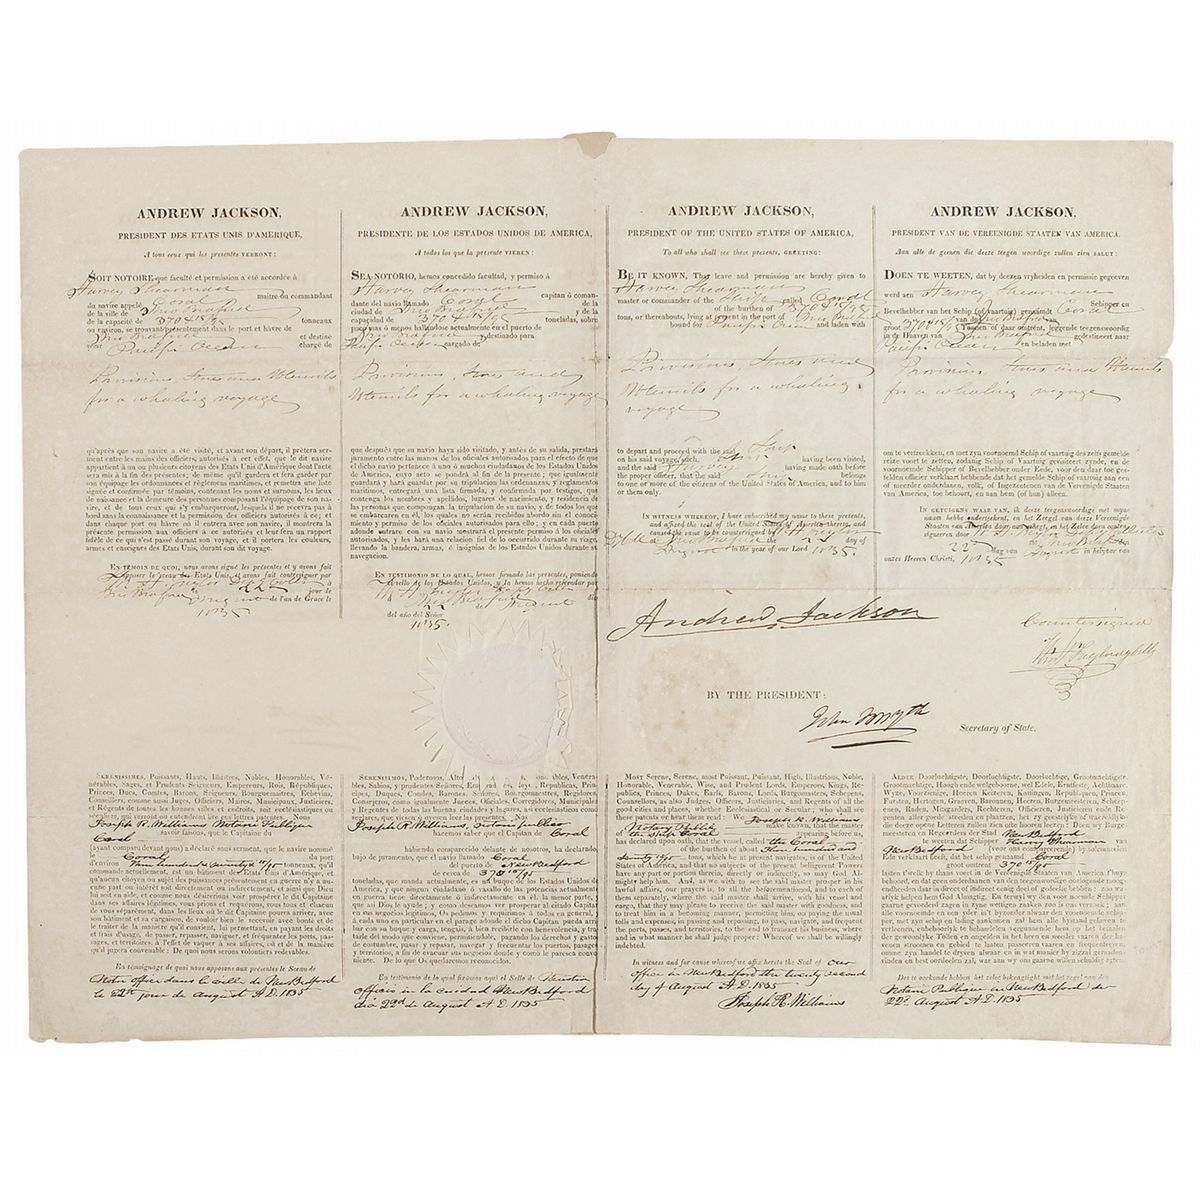 ANDREW JACKSON,
PRESIDENT DES ETATS UNIS D'AMERIQUE,
A tous ceux qui les presentes VERRONT:
SOIT NOTOIRE que faculté et permission a été accordée à
Harvey Shearman
maître du commandant
du navire appelé Coral
de la ville de New Bedford
de la capacité de 370 45/95 tonneaux
ou environ, se trouvant presentement dans le port et hàvre de
New Bedford et destiné
pour Pacific Ocean chargé de
Provisions, Stores and Utensils
for a whaling voyage
qu'après que son navire a été visité, et avant son départ, il prètera serment
entre les mains des officiers, autorisés à cet effet, que le dit navire
appartient à un ou plusieurs citoyens des Etats Unis d'Amérique dont l'acte
sera mis à la fin des présentes; de même qu'il gardera et fera garder par
son équipage les ordonnances et règlemens maritimes, et remettra une liste
signée et confirmée par témoins, contenant les noms et surnoms, les lieux
de naissance et la demeure des personnes composant l'équipage de son navire,
et de tous ceux qui s'y embarqueront, lesquels il ne recevra pas à
bord sans la connaissance et la permission des officiers autorisés à ce; et
dans chaque port ou hàvre où il entrera avec son navire, il montrera la
présente permission aux officiers à ce autorisés et leur fera un rapport
fidèle de ce qui s'est passé durant son voyage, et il portera les couleurs,
armes et enseignes des Etats Unis, durant son dit voyage.
EN TÉMOIN DE QUOI, nous avons signé les présentes et y avons fait
apposer le sceau des Etats Unis, et avons fait contresigner par
New Bedford le 22 jour de
August de l'an de Grace le
1835
ANDREW JACKSON,
PRESIDENTE DE LOS ESTADOS UNIDOS DE AMERICA,
A todos los que la presente VIEREN:
SEA NOTORIO, hemos concedido facultad, y permiso á
Harvey Shearman capitan ó comandante
del navio llamado Coral de la
ciudad de New Bedford y de la
capacidad de 370 45/95 toneladas, sobre
poco mas ó menos hallandose actualmente en el puerto de
New Bedford y destinado para
Pacific Ocean cargado de.
Provisions, Stores and
Utensils for a whaling voyage
que despues que su navio haya sido visitado, y antes de su salida, prestará
juramento en las manos de los oficiales autorizados para el efecto de que
el dicho navio pertenece á uno ó muchos ciudadanos de los Estados Unidos
de America, cuyo acto se pondrá al fin de la presente; que igualmente
guardará y hará guardar por su tripulacion las ordenanzas, y reglamentos
maritimos, entregará una lista firmada, y confirmada por testigos, que
contenga los nombres y apellidos, lugares de nacimiento, y residencia de
las personas que compongan la tripulacion de su navio, y de todos los que
se embarcaren en él, los quales no serán recibidos abordo sin el conocimiento
y permiso de los oficiales autorizados para ello; y en cada puerto
adonde entrare con su navio mostrará el presente permiso á los oficiales
autorizados, y les hará una relacion fiel de lo ocurrido durante su viage,
llevando la bandera, armas, é insignias de los Estados Unidos durante su
navegacion.
EN TESTIMONIO DE LO QUAL, hemos firmado las presentes, poniendo
el sello de los Estados Unidos, y la hemos hecho refrendar por
New Bedford dia
22 de August
del año del Señor
1835.
ANDREW JACKSON,
PRESIDENT OF THE UNITED STATES OF AMERICA,
To all who shall see these presents, GREETING:
BE IT KNOWN, That leave and permission are hereby given to
Harvey Shearman
master or commander of the Ship called Coral
of the burthen of 370 45/95
tons, or thereabouts, lying at present in the port of New Bedford
bound for Pacific Ocean and laden with
Provisions, Stores and
Utensils for a whaling
voyage
to depart and proceed with the said Ship
on his said voyage, such Ship having been visited,
and the said Harvey having made oath before
the proper officer, that the said Ship belongs
to one or more of the citizens of the United States of America, and to him
or them only.
IN WITNESS WHEREOF, I have subscribed my name to these presents,
and affixed the seal of the United States of America thereto, and
caused the same to be countersigned by
New Bedford the 22 day of
August in the year of our Lord 1835.
ANDREW JACKSON,
PRESIDENT VAN DE VEREENIGDE STAATEN VAN AMERICA.
Aan alle de geenen die deeze teegen woordige zullen zien SALUT:
DOEN TE WEETEN, dat by deezen vryheiden en permissie gegeeven
werd aen Harvey Shearman Schipper en
Bevelhebber van het Schip of (vaartuig) genaamdt Coral
van de New Bedford van
groot 370 45/95 Tonnen of daar omtrént, leggende teegenswoordig
in de Haaven van New Bedford gedestineert naar
Pacific Ocean en beladen met
Provisions, Stores and Utensils
for a whaling voyage
om te vertrekken, en met zyn voornoemd Schip of vaartuig des zelfs gemelde
reize voort te zetten, zodanig Schip of Vaartuig gevisiteert zynde, en de
voornoemde Schipper of Bevelhebber onder Eede, voor den daar toe gestelden
officier verklaart hebbende dat het gemelde Schip of vaartuig aan een
of meerder onderdaanen, volk, of Ingezeetenen van de Vereenigde Staaten
van America, toe behoort, en aan hem (of hun) alleen.
IN GETUIGENS WAAR VAN, ik deeze teegenswoordige met myn
naam hebbe onderteekent, en het Zeegel van de Vereenigde
Staaten van America daar aan gehegt, en het zelve doen contrasigneeren door
de 22 dag van August in hetjaar van
onzes Heeren Christi, 1835
Andrew Jackson
Countersigned
BY THE PRESIDENT:
John Forsyth
Secretary of State.
SERENISSIMES, Puissants, Hauts, Illustres, Nobles, Honorables, Vénérables,
Sages, et Prudents Seigneurs, Empereurs, Rois, Républiques,
Princes, Ducs, Comtes, Barons, Seigneurs, Bourguemaitres, Echevins,
Conseillers, comme aussi Juges, Officiers, Maires, Municipaux, Justiciers,
et Régents de toutes les bonnes villes et endroits, soit ecclésiastiques ou
séculiers, qui verront ou entendront lire ces lettres patentes. Nous
Joseph R. Williams Notaire Publique
savoir faisons, que le Capitaine du
Coral
(ayant comparu devant nous) a déclaré sous serment, que le navire nommé
le Coral du port
d'environ Three hundred & seventy & 45/95 tonneaux, qu'il
commande actuellement, est un bâtiment des Etats Unis d'Amérique, et
qu'aucun citoyen des états en guerre
cune part ou intérêt soit directement ou indirectement, et ainsi que Dieu
lui soit en aide. Et comme nous désirerions voir prospérer le dit Capitaine
dans ses affaires légitimes, vous prions et requérons, vous tous et chacun
de vous séparément, dans les lieux où le dit Capitaine pourra arriver, avec
son navire et sa cargaison, qu'il vous plaise de le recevoir avec bonté et
le traiter de la manière qu'il convient, lui permettant, en payant les droits
et frais d'usage, de passer, repasser, naviguer, et fréquenter les ports, passages,
et territoires, à l'effet de vaquer à ses affaires, où et de la manière
qu'il jugera convenable: De quoi nous serons volontiers redevables.
En témoignage de quoi nous apposons aux présentes le Sceau de
Notre office dans la ville de New Bedford
le 22d jour de August A.D. 1835
SERENISIMOS, Poderosos,
Duques, Condes, Barones, Señores, Burgomaestres, Regidores,
Consejeros, como igualmente Jueces, Oficiales, Corregidores, Municipales
seglares, que viesen ó oyesen leer las presentes. Nos
Joseph R. Williams, notario publico
hacemos saber que el Capitan de Coral
habiendo comparecido delante de nosotros, ha declarado,
bajo de juramento, que el navio llamado Coral
del puerto de New Bedford
de cerca de 370 45/95
toneladas, que manda actualmente, es un buque de los Estados Unidos de
America, y que ningun ciudadano ó vasallo de las potencias actualmente
en guerra tiene directamente ó indirectamente en él, la menor parte, y
asi Dios le ayude; y como deseamos ver prosperar al citado Capitan
en sus negocios legitimos, Os pedimos y requirimos á todos en general, y
á cada uno en particular, en donde el dicho Capitan pueda arribar
con su buque y carga, tengais, á bien recibirle con benevolencia, y tratarle
del modo que conviene, permitiendole, pagando los derechos y gastos
de costumbre, pasar y repasar, navegar y frecuentar los puertos, pasages
y territorios, á fin de evacuar sus negocios donde y como le paresca conveniente.
De lo que Os quedaremos reconocidos.
En testimonio de lo qual fixamos aqui el Sello de Nuestra
officio in la ciudad de New Bedford
dia 22d de August A.D. 1835
MOST Serene, Serene, most Puissant, Puissant, High, Illustrious, Noble,
Honorable, Venerable, Wise, and Prudent Lords, Emperors, Kings, Republics,
Princes, Dukes, Earls, Barons, Lords, Burgomasters, Schepens,
Counsellors, as also Judges, Officers, Justiciaries, and Regents of all the
good cities and places, whether Ecclesiastical or Secular; who shall see
these patents or hear them read: We Joseph R. Williams
Notary Public make known, that the master
of the Ship Coral appearing before us,
has declared upon oath, that the vessel, called the Coral
of the burthen of about Three hundred and
Seventy 45/95 tons, which he at present navigates, is of the United
States of America, and that no subjects of the present belligerent Powers
have any part or portion therein, directly or indirectly, so may God Almighty
help him. And, as we wish to see the said master prosper in his
lawful affairs, our prayer is, to all the beforementioned, and to each of
them separately, where the said master shall arrive, with his vessel and
cargo, that they may please to receive the said master with goodness, and
to treat him in a becoming manner, permitting him, on paying the usual
tolls and expenses, in passing and repassing, to pass, navigate, and frequent
the ports, passes, and territories, to the end to transact his business, where
and in what manner he shall judge proper: Whereof we shall be willingly
indebted.
In witness and for cause whereof we affix hereto the Seal of our
office in New Bedford the twenty second
day of August A.D. 1835
Joseph R. Williams
ALDER Doorluchtigste, Doorluchtigste, Doorluchtige, Grootmachtigste,
Grootmachtige, Hoogh ende welgeboorne, wel Edele, Erntfeste, Achtbaare,
Wyze, Voorzienige, Heeren Keizeren, Koningen, Republyken, Princen,
Fursten, Hertogen, Graeven, Baronnen, Heeren, Burgermeesteren, Scheepenen,
Raden, Mitsgaders, Rechteren, Officieren, Justicieren ende Regenten,
aller goede steden en plaetsen, het zy geestelyke of waereldlyke
die deeze opene Letteren zullen zien ofte hooren leezen: Doen Wy Burgermeesteren
en Regeerders der Stad New Bedford
te weeten dat Schipper Harvey Shearman van
New Bedford (voor ons compareerende) by solemneelen
Ede verklaart heeft, dat het schip genaamd Coral
groot omtrent 370 45/95
Des te oorkonde hebben het zelve bekragtigt met het zegel van den
Notaire Publique in New Bedford den
22d August A.D. 1835